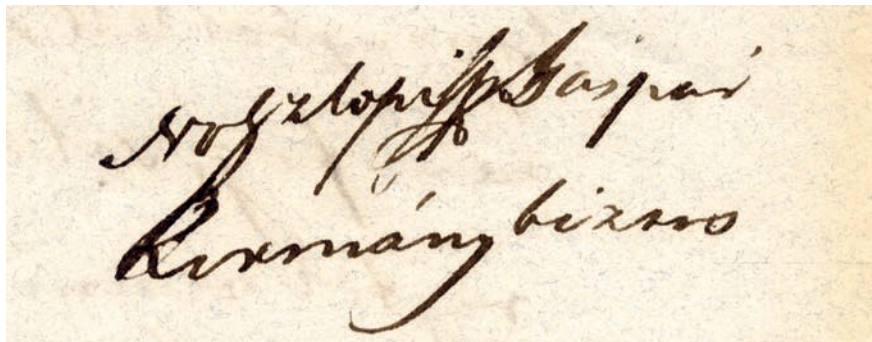 Noszlopy Gáspár
Kormánybiztos